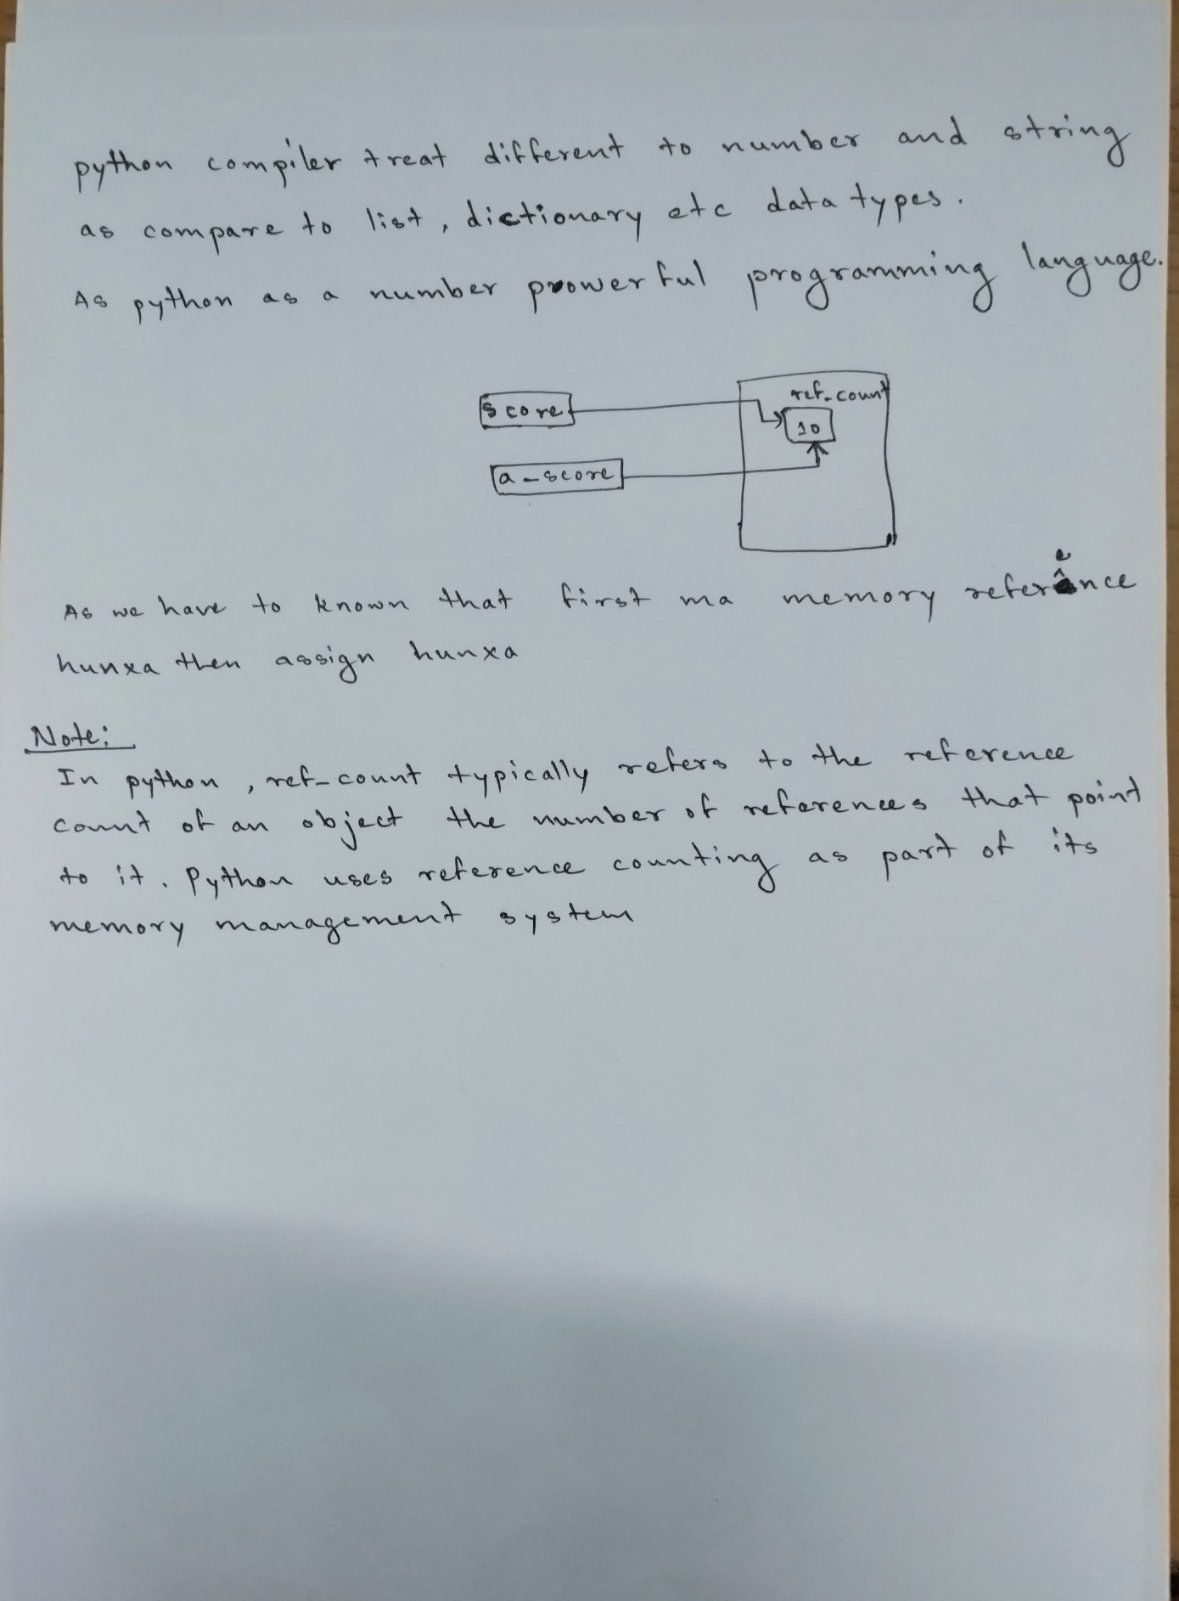 python compiler treat different to number and string
as compare to list, dictionary etc data types.
As python as a number powerful programming language.
ref_count
score
10
a_score
As we have to known that first ma memory reference
hunxa then assign hunxa
Note:
In python, ref_count typically refers to the reference
count of an object the number of references that point
to it. Python uses reference counting as part of its
memory management system